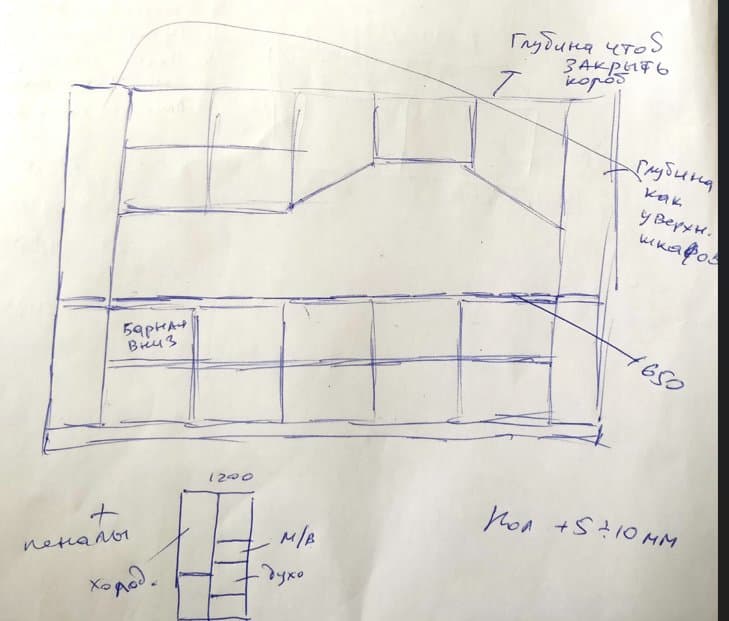 Глубина чтоб
закрыть
короб
Глубина
как
у верхн.
шкафов
Барная
вниз
650
1200
+
пеналы
м/в
холод.
духо
Пол +5÷10 мм